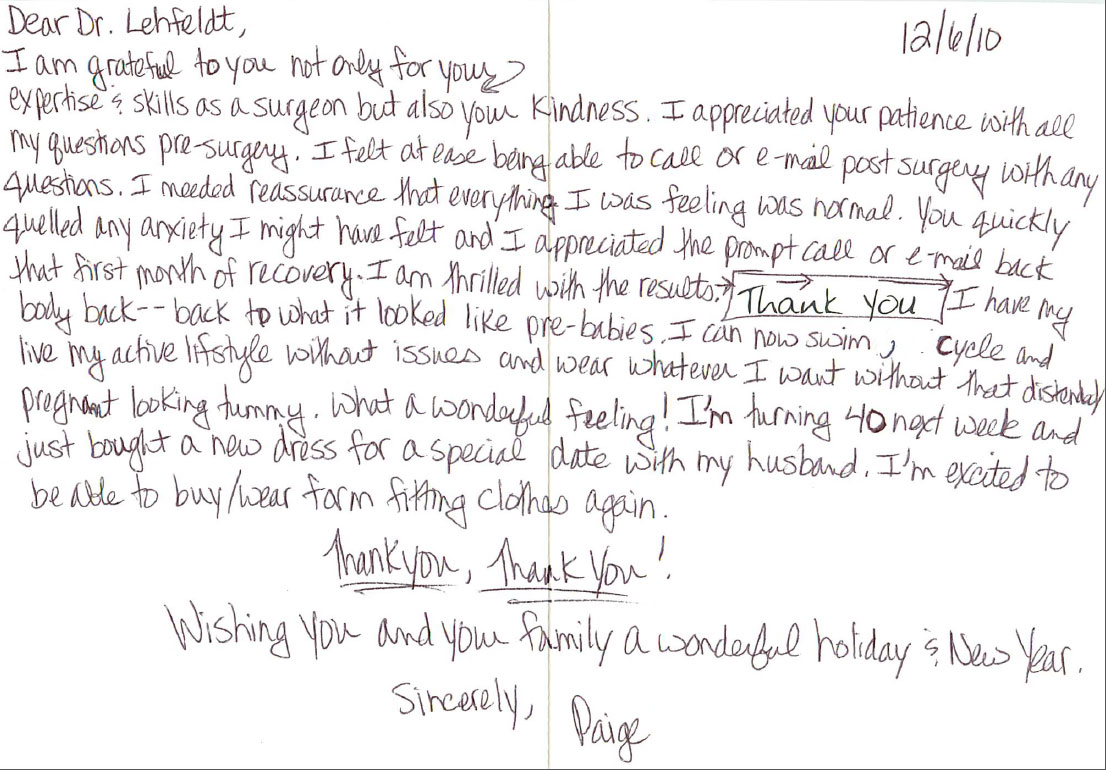 Dear Dr. Lehfeldt,
12/6/10
I am grateful to you not only for your
expertise & skills as a surgeon but also your kindness. I appreciated your patience with all
my questions pre-surgery. I felt at ease being able to call or e-mail post surgery with any
questions. I needed reassurance that everything I was feeling was normal. You quickly
quelled any anxiety I might have felt and I appreciated the prompt call or e-mail back
that first month of recovery. I am thrilled with the results. Thank you I have my
body back -- back to what it looked like pre-babies. I can now swim, cycle and
live my active lifstyle without issues and wear whatever I want without that distended/
pregnant looking tummy. What a wonderful feeling! I'm turning 40 next week and
just bought a new dress for a special date with my husband. I'm excited to
be able to buy/wear form fitting clothes again.
Thank you, Thank You!
Wishing you and your family a wonderful holiday & New Year.
Sincerely,
Paige